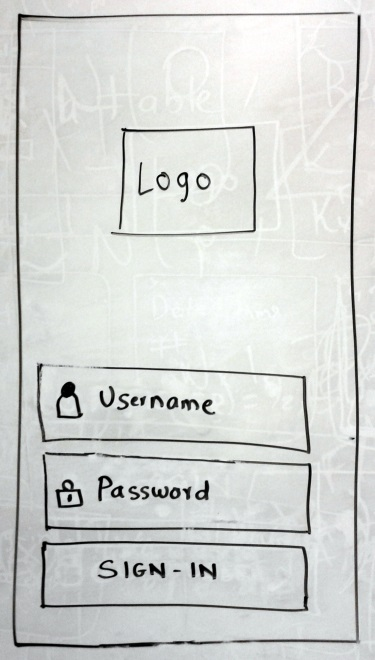 Logo
Username
Password
SIGN-IN